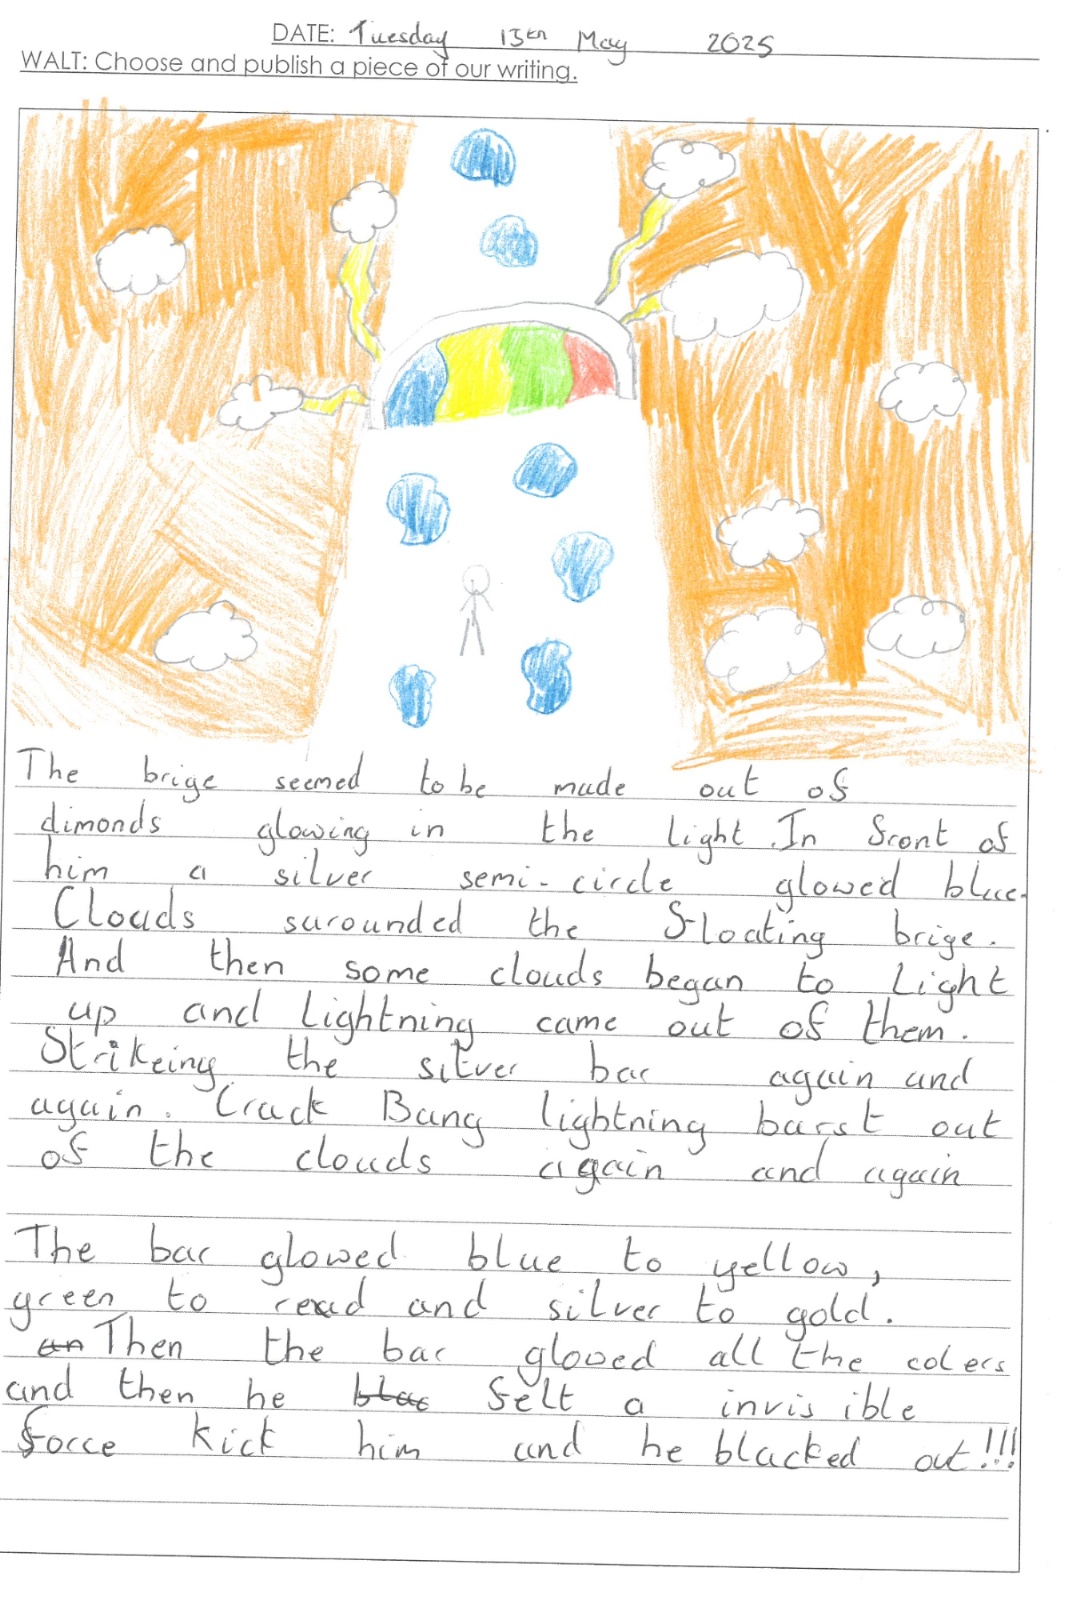 DATE: Tuesday 13th May 2025
WALT: Choose and publish a piece of our writing.
The brige seemed to be made out of
dimonds glowing in the light. In front of
him a silver semi-circle glowed blue.
Clouds surounded the floating brige.
And then some clouds began to light
up and lightning came out of them.
Strikeing the silver bar again and
again. Crack Bang lightning burst out
of the clouds again and again
The bar glowed blue to yellow,
green to read and silver to gold.
an Then the bar glowed all the colers
and then he blac felt a invisible
force kick him and he blacked out!!!